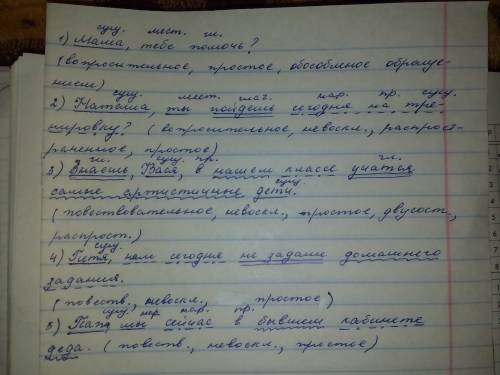 сущ. мест. гл.
1) Мама, тебе помочь?
(вопросительное, простое, обособленное обраще-
нием)
сущ. мест. глаг. нар. пр. сущ.
2) Наташа, ты пойдёшь сегодня на тре-
нировку? (вопросительное, невоскл., распрост-
раненное, простое)
гл. сущ. пр. гл.
3) Знаешь, Вася, в нашем классе учатся
сущ.
самые артистичные дети.
(повествовательное, невоскл., простое, двусост.,
распрост.)
сущ.
4) Петя, нам сегодня не задали домашнего
задания.
(повеств., невоскл., простое)
сущ. нар. пр.
5) Папа, мы сейчас в бывшем кабинете
деда. (повеств., невоскл., простое)